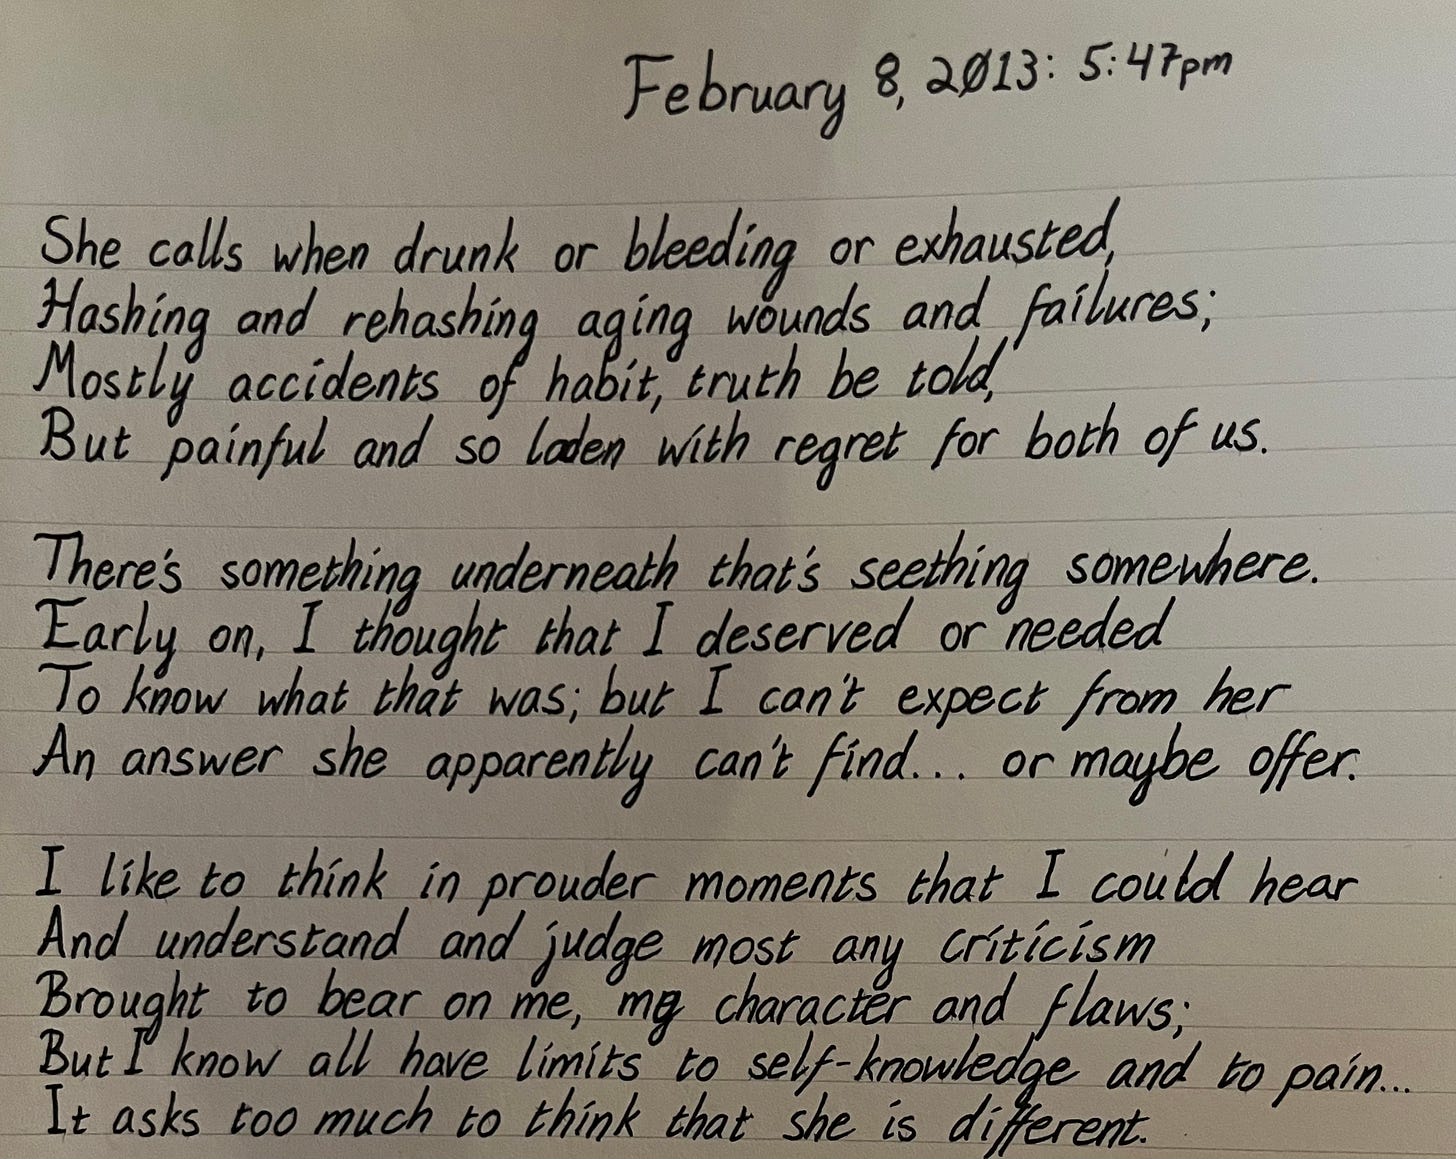 February 8, 2Ø13: 5:47pm
She calls when drunk or bleeding or exhausted,
Hashing and rehashing aging wounds and failures;
Mostly accidents of habit, truth be told,
But painful and so laden with regret for both of us.
There's something underneath that's seething somewhere.
Early on, I thought that I deserved or needed
To know what that was; but I can't expect from her
An answer she apparently can't find... or maybe offer.
I like to think in prouder moments that I could hear
And understand and judge most any criticism
Brought to bear on me, my character and flaws;
But I know all have limits to self-knowledge and to pain...
It asks too much to think that she is different.